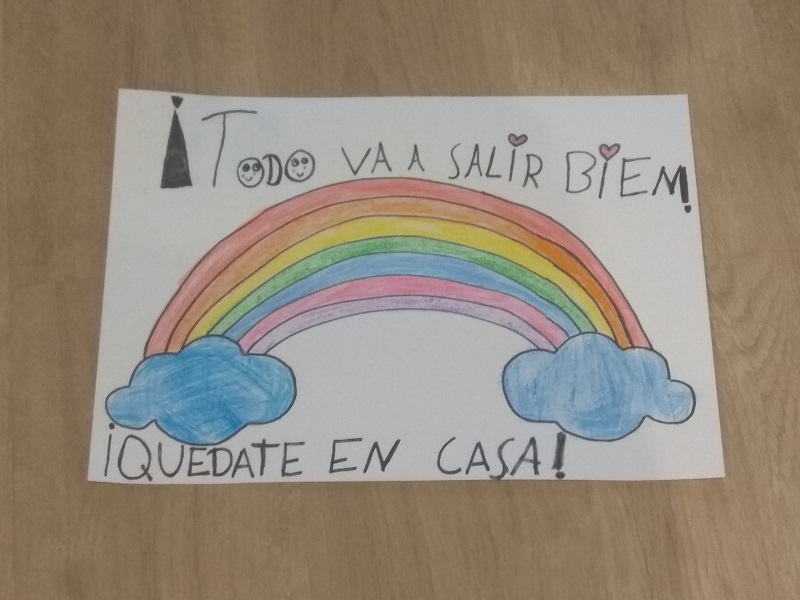 ¡TODO VA A SALIR BIEN!
¡QUEDATE EN CASA!